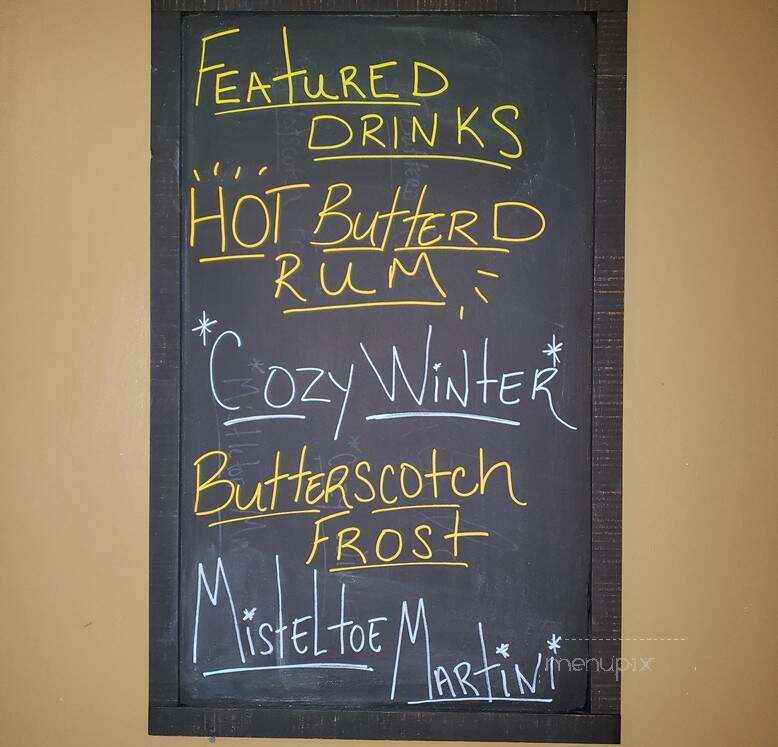 FEAtURED
DRINKS
HOT ButtERD
RUM
*COZY WiNtER*
ButtERSCOtch
FROSt
MistELtOE MARtiNi
menupix